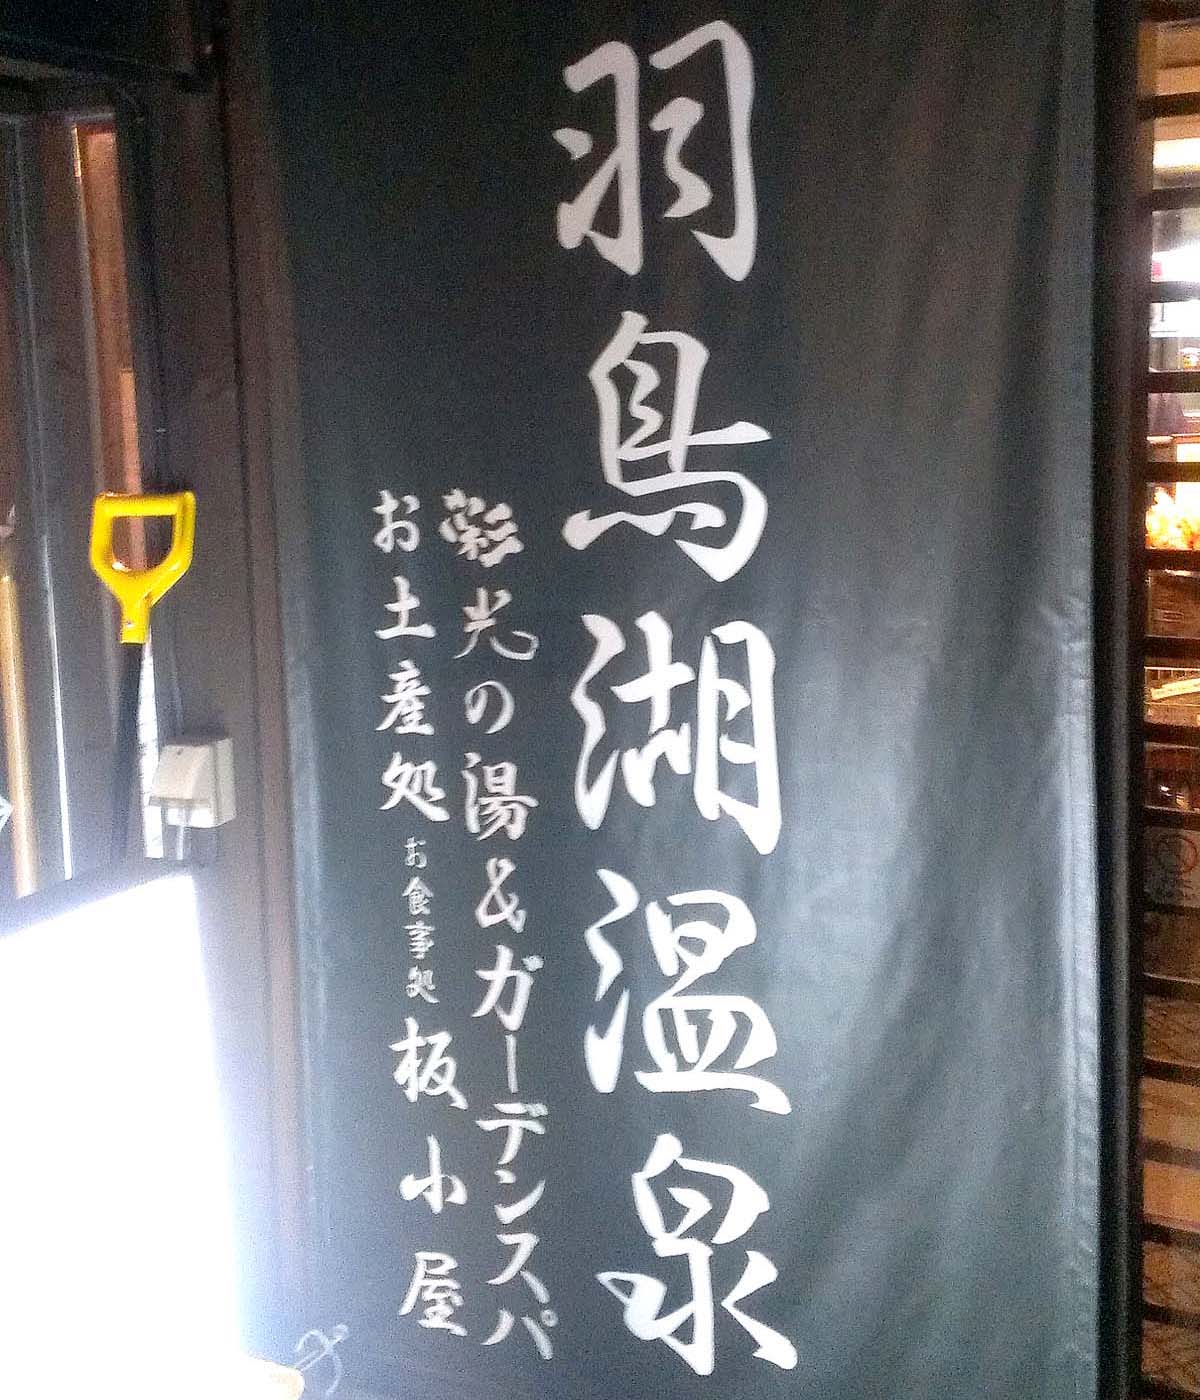 羽鳥湖温泉
彩光の湯&ガーデンスパ
お土産処 お食事処 板小屋